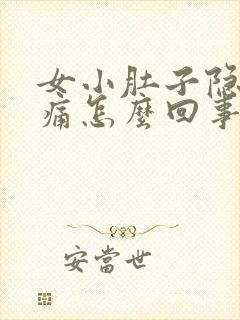 女小肚子隐
痛怎麼回事
安當世